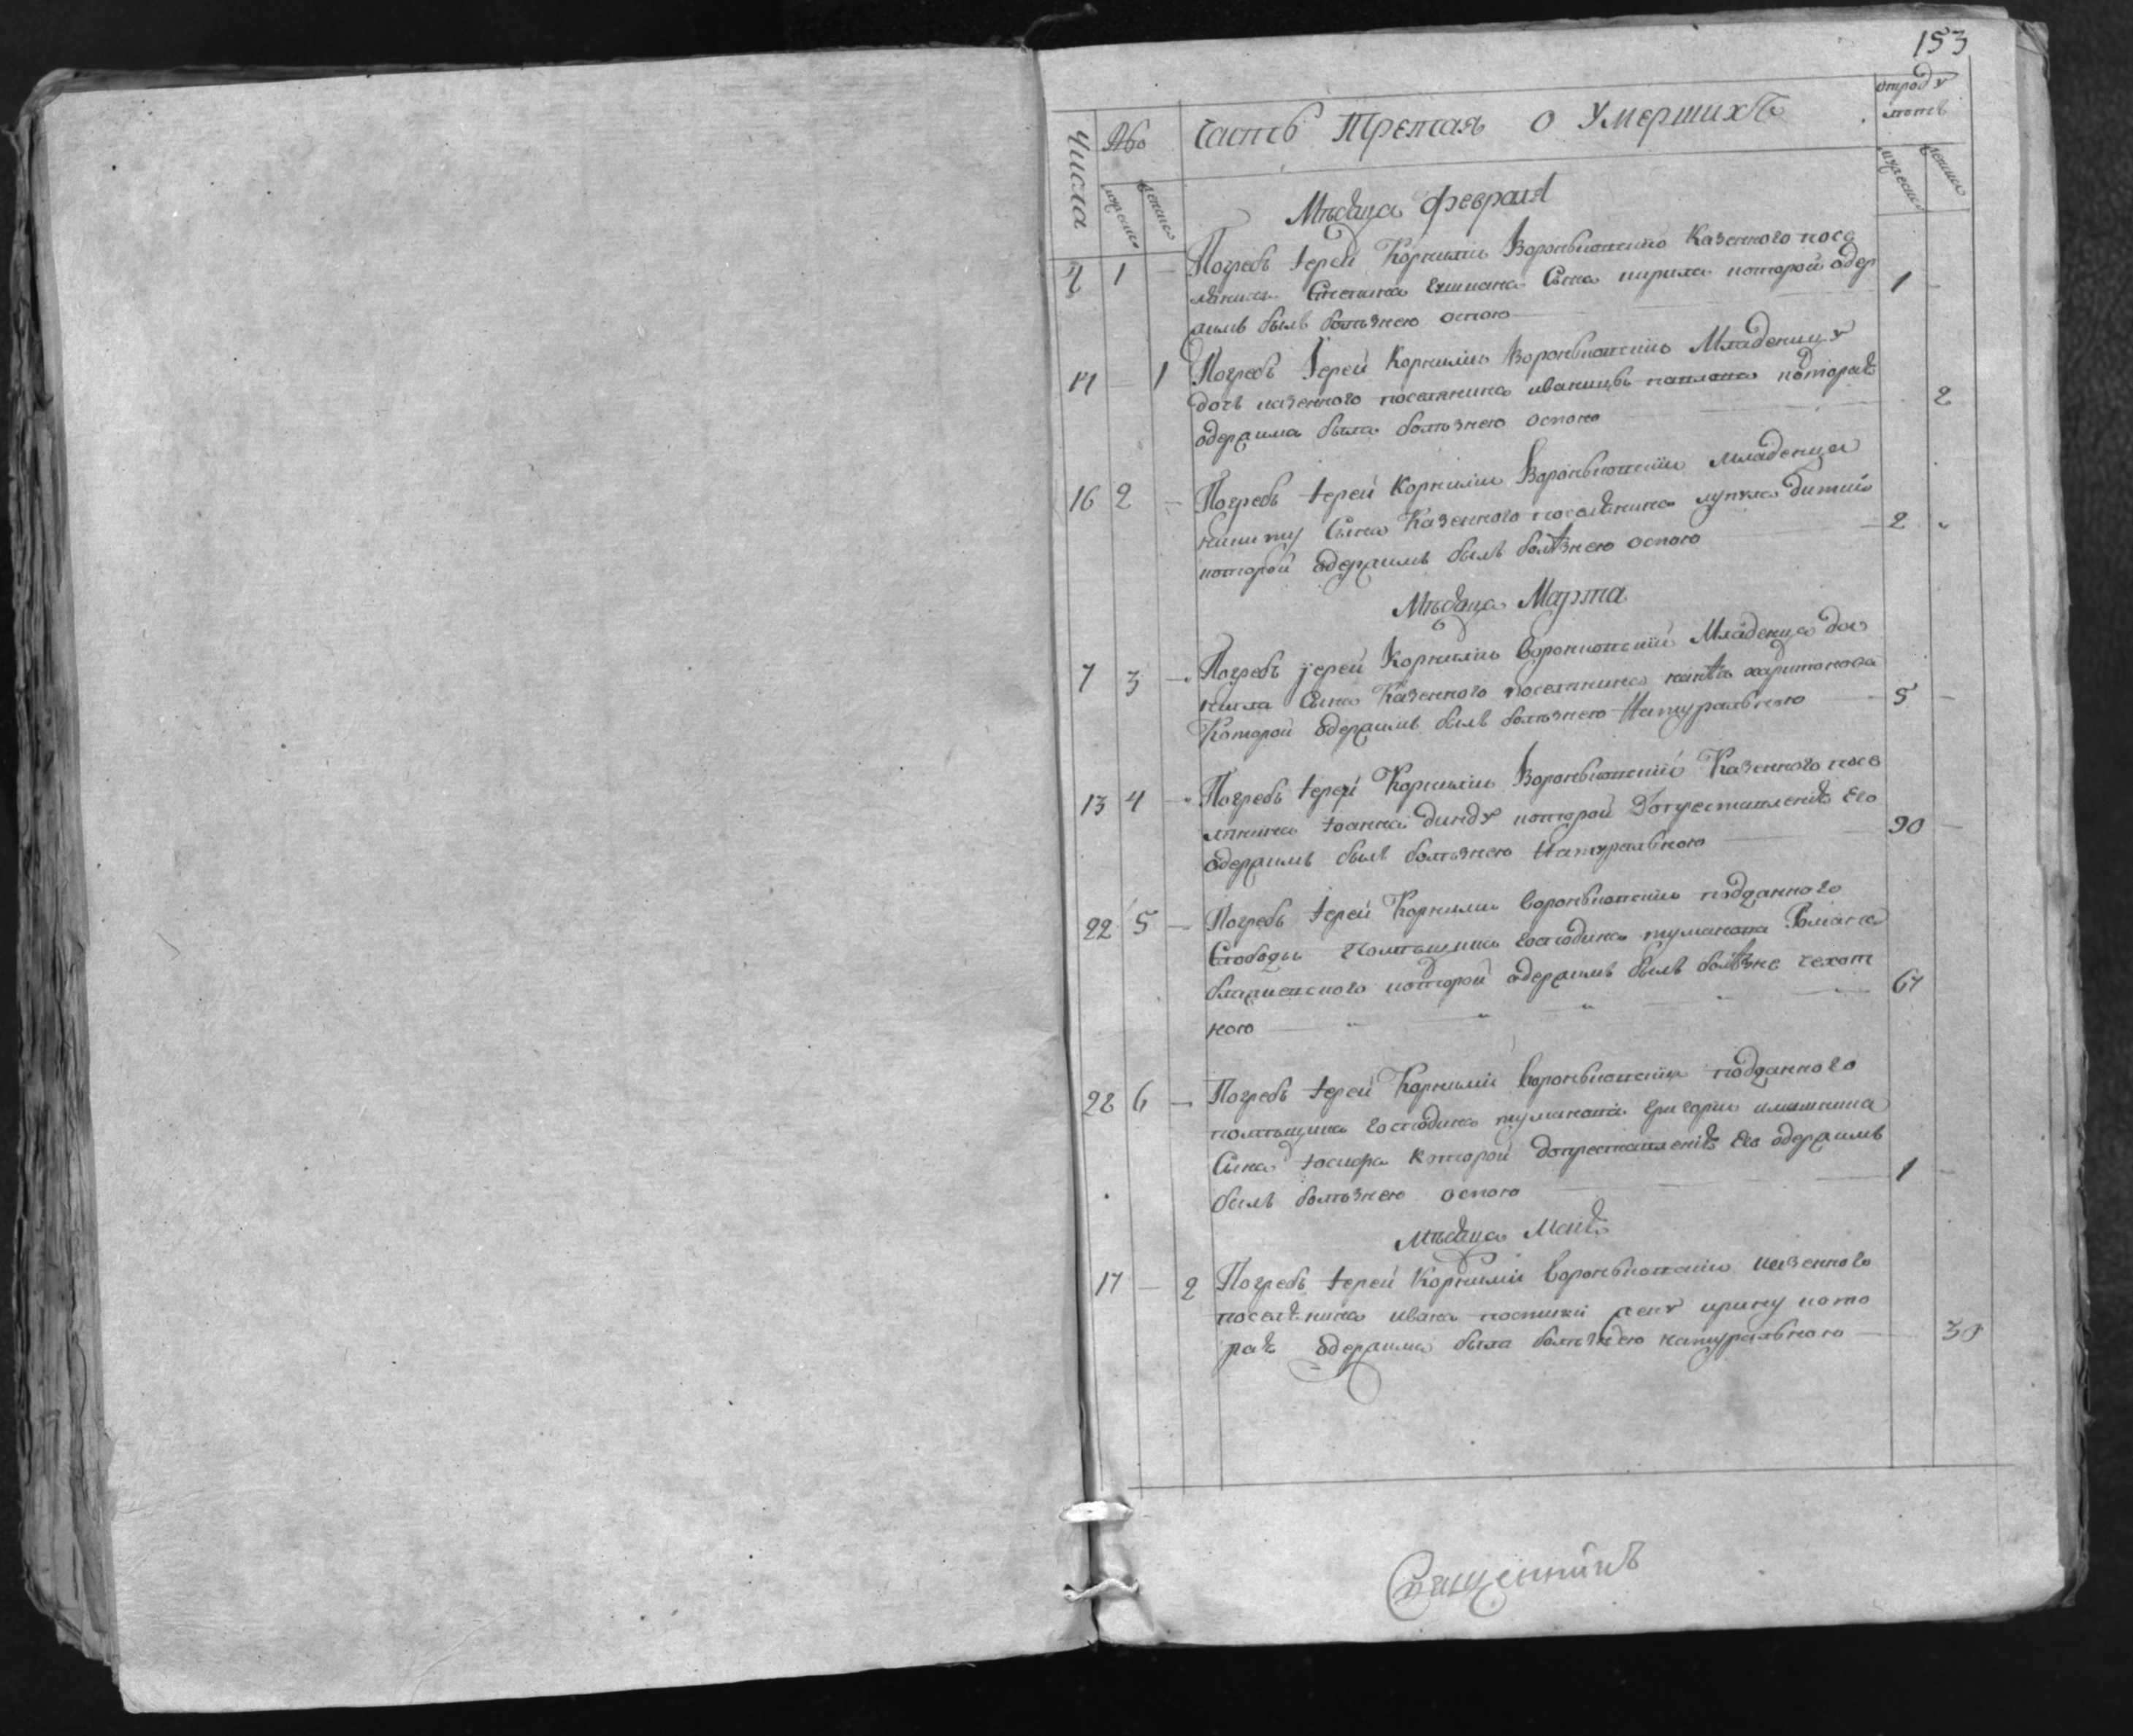 153
Числа
№
мужеска
женска
Часть Третая о Умершихъ
отроду
летъ
мужеска
женска
Мѣсяца февраля
4 1 — Погребъ Іерей Корнилій Вороньковскій Казенного посе
лянина Сына кирила которой одер
жимъ былъ болѣзнею оспою 1 —
14 — 1 Погребъ Іерей Корнилій Вороньковскій Младеницу
дочь казенного поселянина которая
одержима была болѣзнею оспою 2
16 2 — Погребъ Іерей Корнилій Вороньковскій младенца
никиту Сына Казенного поселянина
которой одержимъ былъ болѣзнею оспою 2
Мѣсяца Марта
7 3 — Погребъ іерей Корнилій Вороньковскій Младенца да
нила Сына Казенного поселянина харитонова
Которой одержимъ былъ болѣзнею Натуральною 5 —
13 4 — Погребъ Іерей Корнилій Вороньковскій Казенного посе
лянина Іоанна динду которой допреставленія Его
одержимъ былъ болѣзнею Натуральною 90 —
22 5 — Погребъ Іерей Корнилій Вороньковскій подданного
Слободы Помѣщика господина туманова Романа
которой одержимъ былъ болѣзне чехот
ною 67
22 6 — Погребъ Іерей Корнилій Вороньковскій подданного
помѣщика господина туманова григорія
Сына Іосифа которой допреставленія Его одержимъ
былъ болѣзнею оспою 1 —
Мѣсяца Маія
17 — 2 Погребъ Іерей Корнилій Вороньковскій казенного
поселянина ивана жену ирину кото
рая одержима была болѣзнею натуральною 30
Священникъ